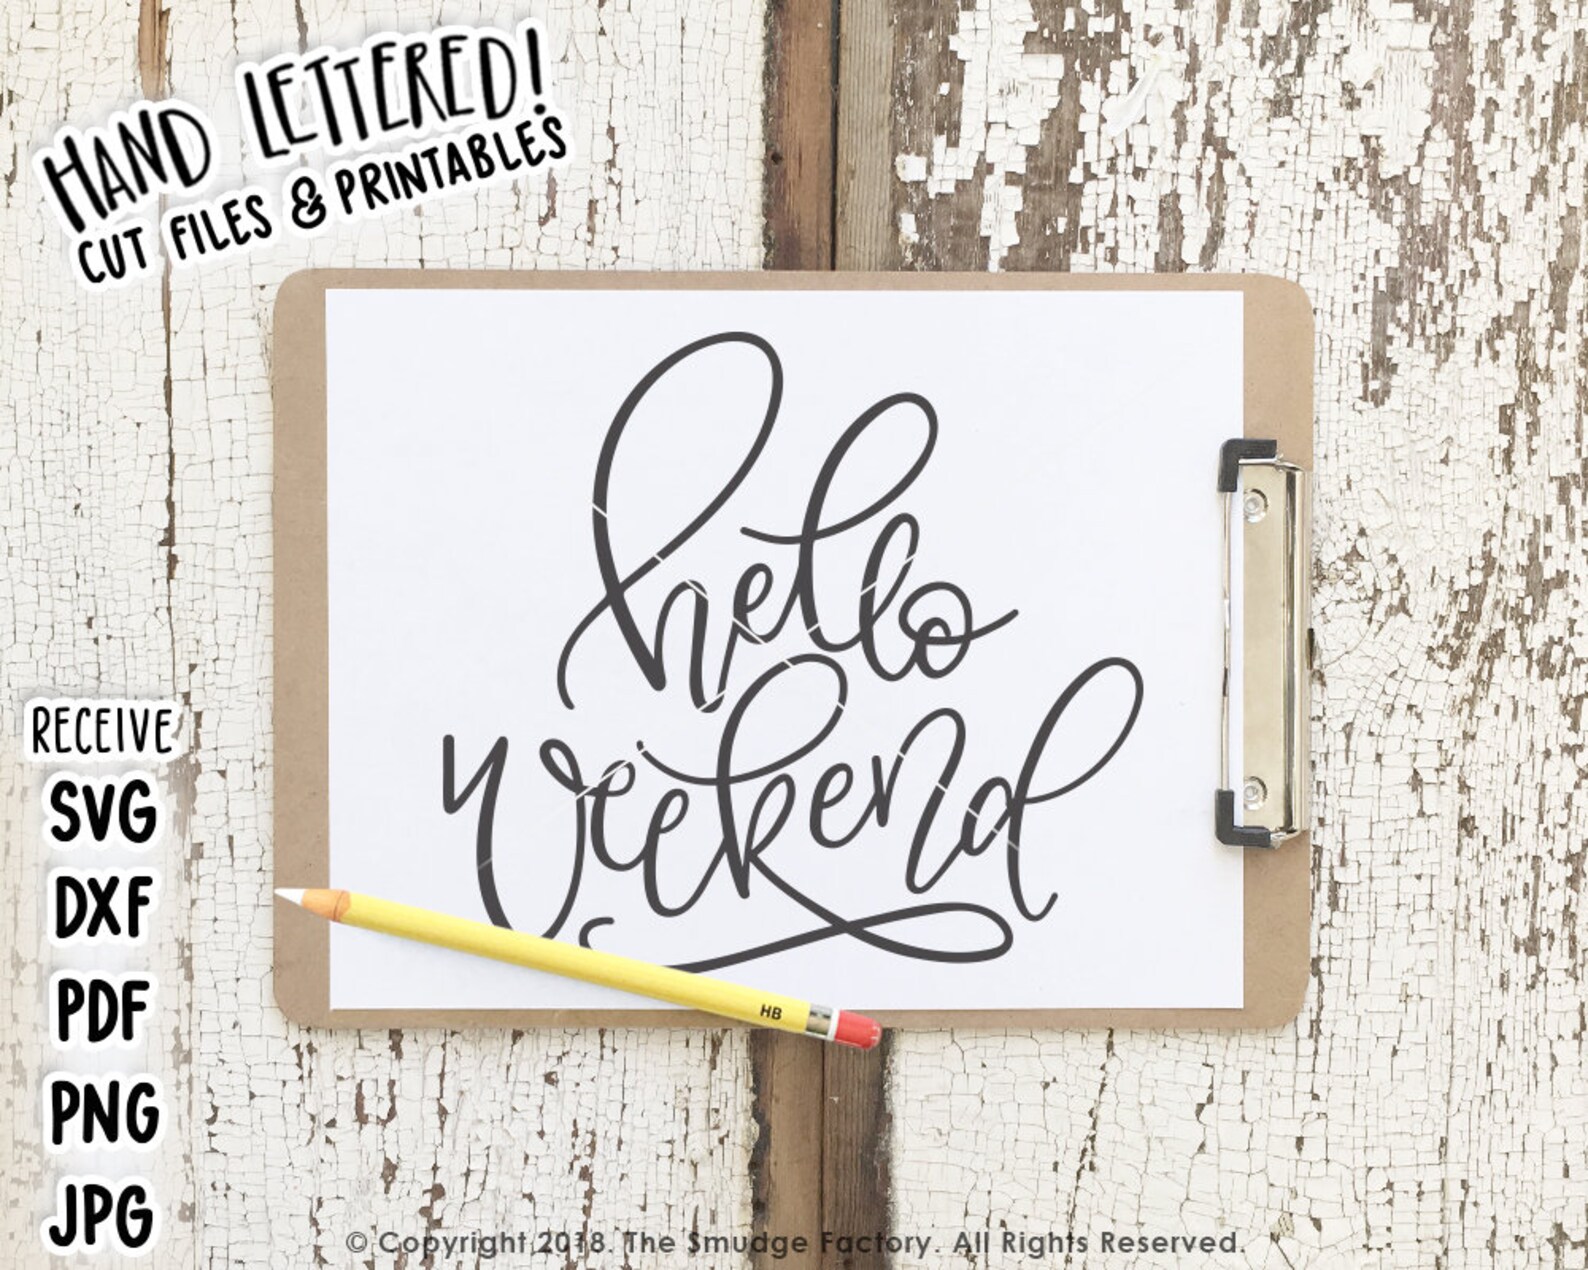 HAND LETTERED!
CUT FILES & PRINTABLES
hello
weekend
RECEIVE
SVG
DXF
PDF
PNG
JPG
HB
© Copyright 2018. The Smudge Factory. All Rights Reserved.